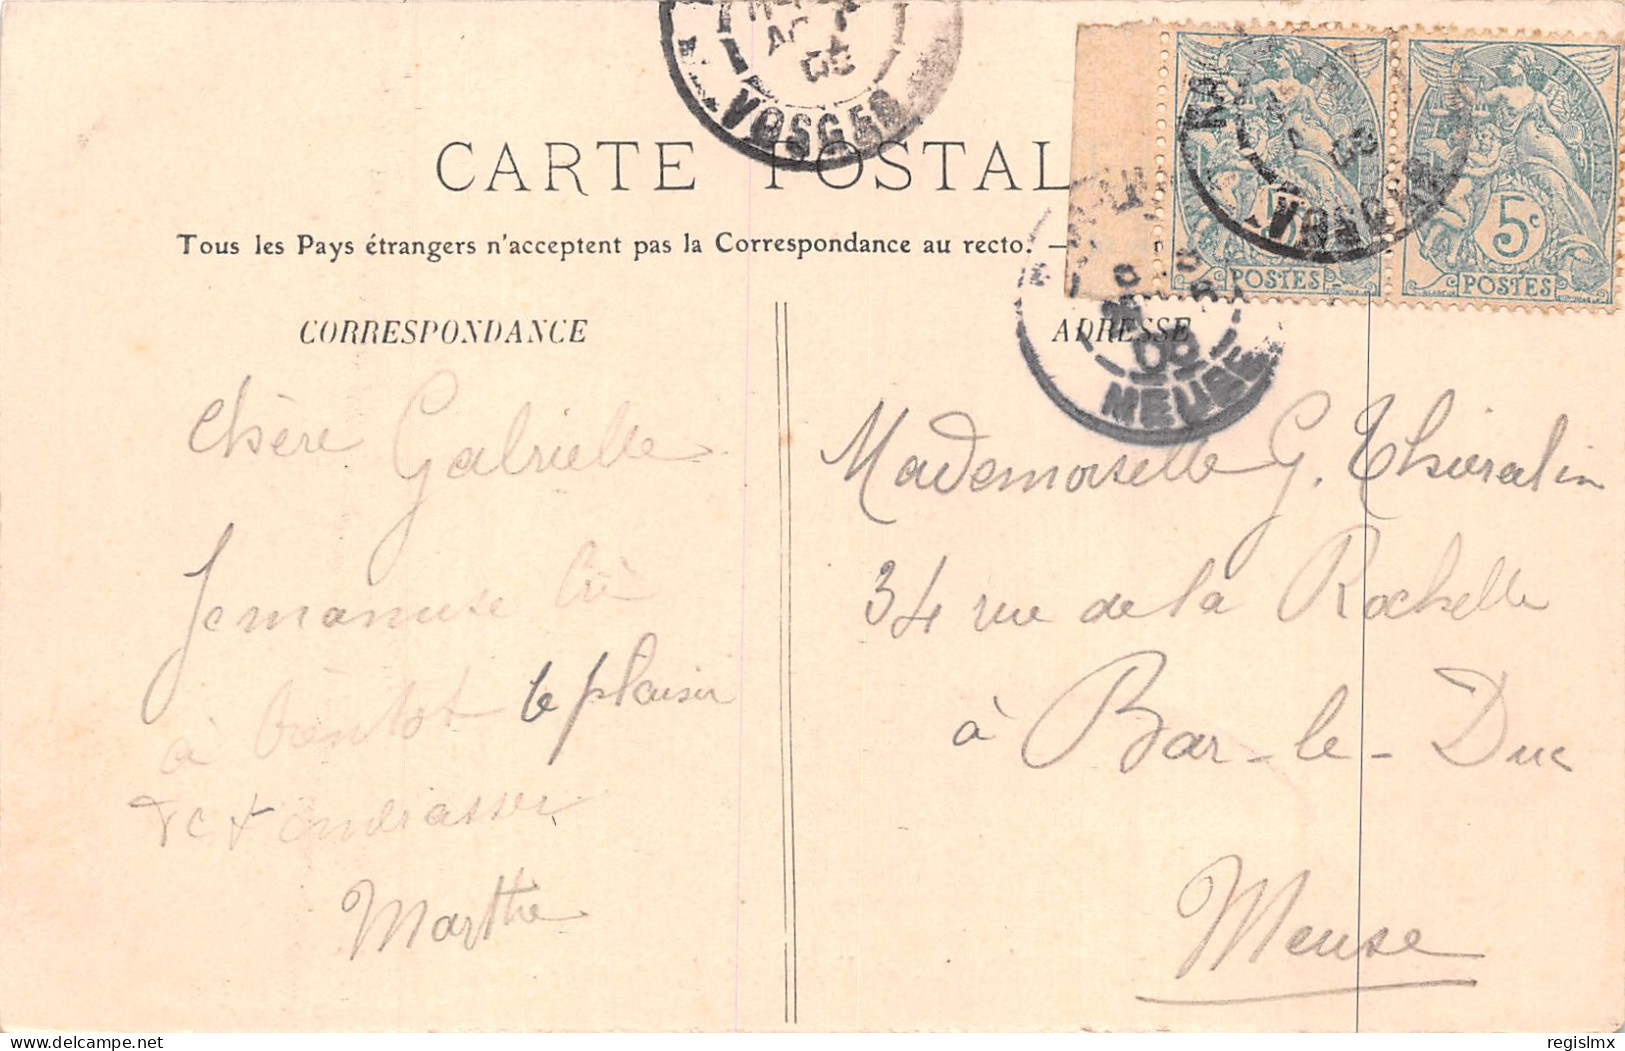 VOSGES
CARTE POSTALE
Tous les Pays étrangers n'acceptent pas la Correspondance au recto. —
CORRESPONDANCE
ADRESSE
MEUSE
08
VOSGES
FRANÇAISE
5c
POSTES
POSTES
chère Gabrielle
Je m'amuse
à bientôt le plaisir
de t'embrasser
Marthe
Mademoiselle G.
34 rue de la Rochelle
à Bar-le-Duc
Meuse
© regislmx